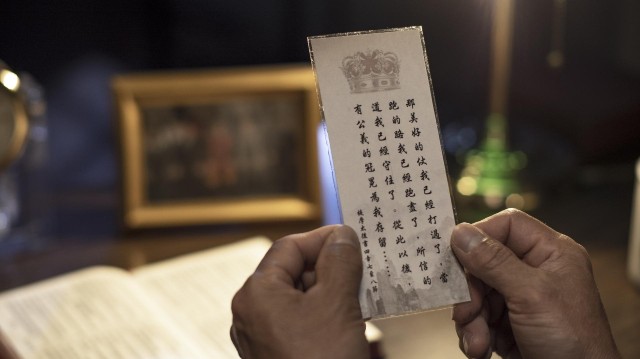 那美好的仗我已經打過了，當
跑的路我已經跑盡了，所信的
道我已經守住了。從此以後，
有公義的冠冕為我存留……
提摩太後書四章七至八節